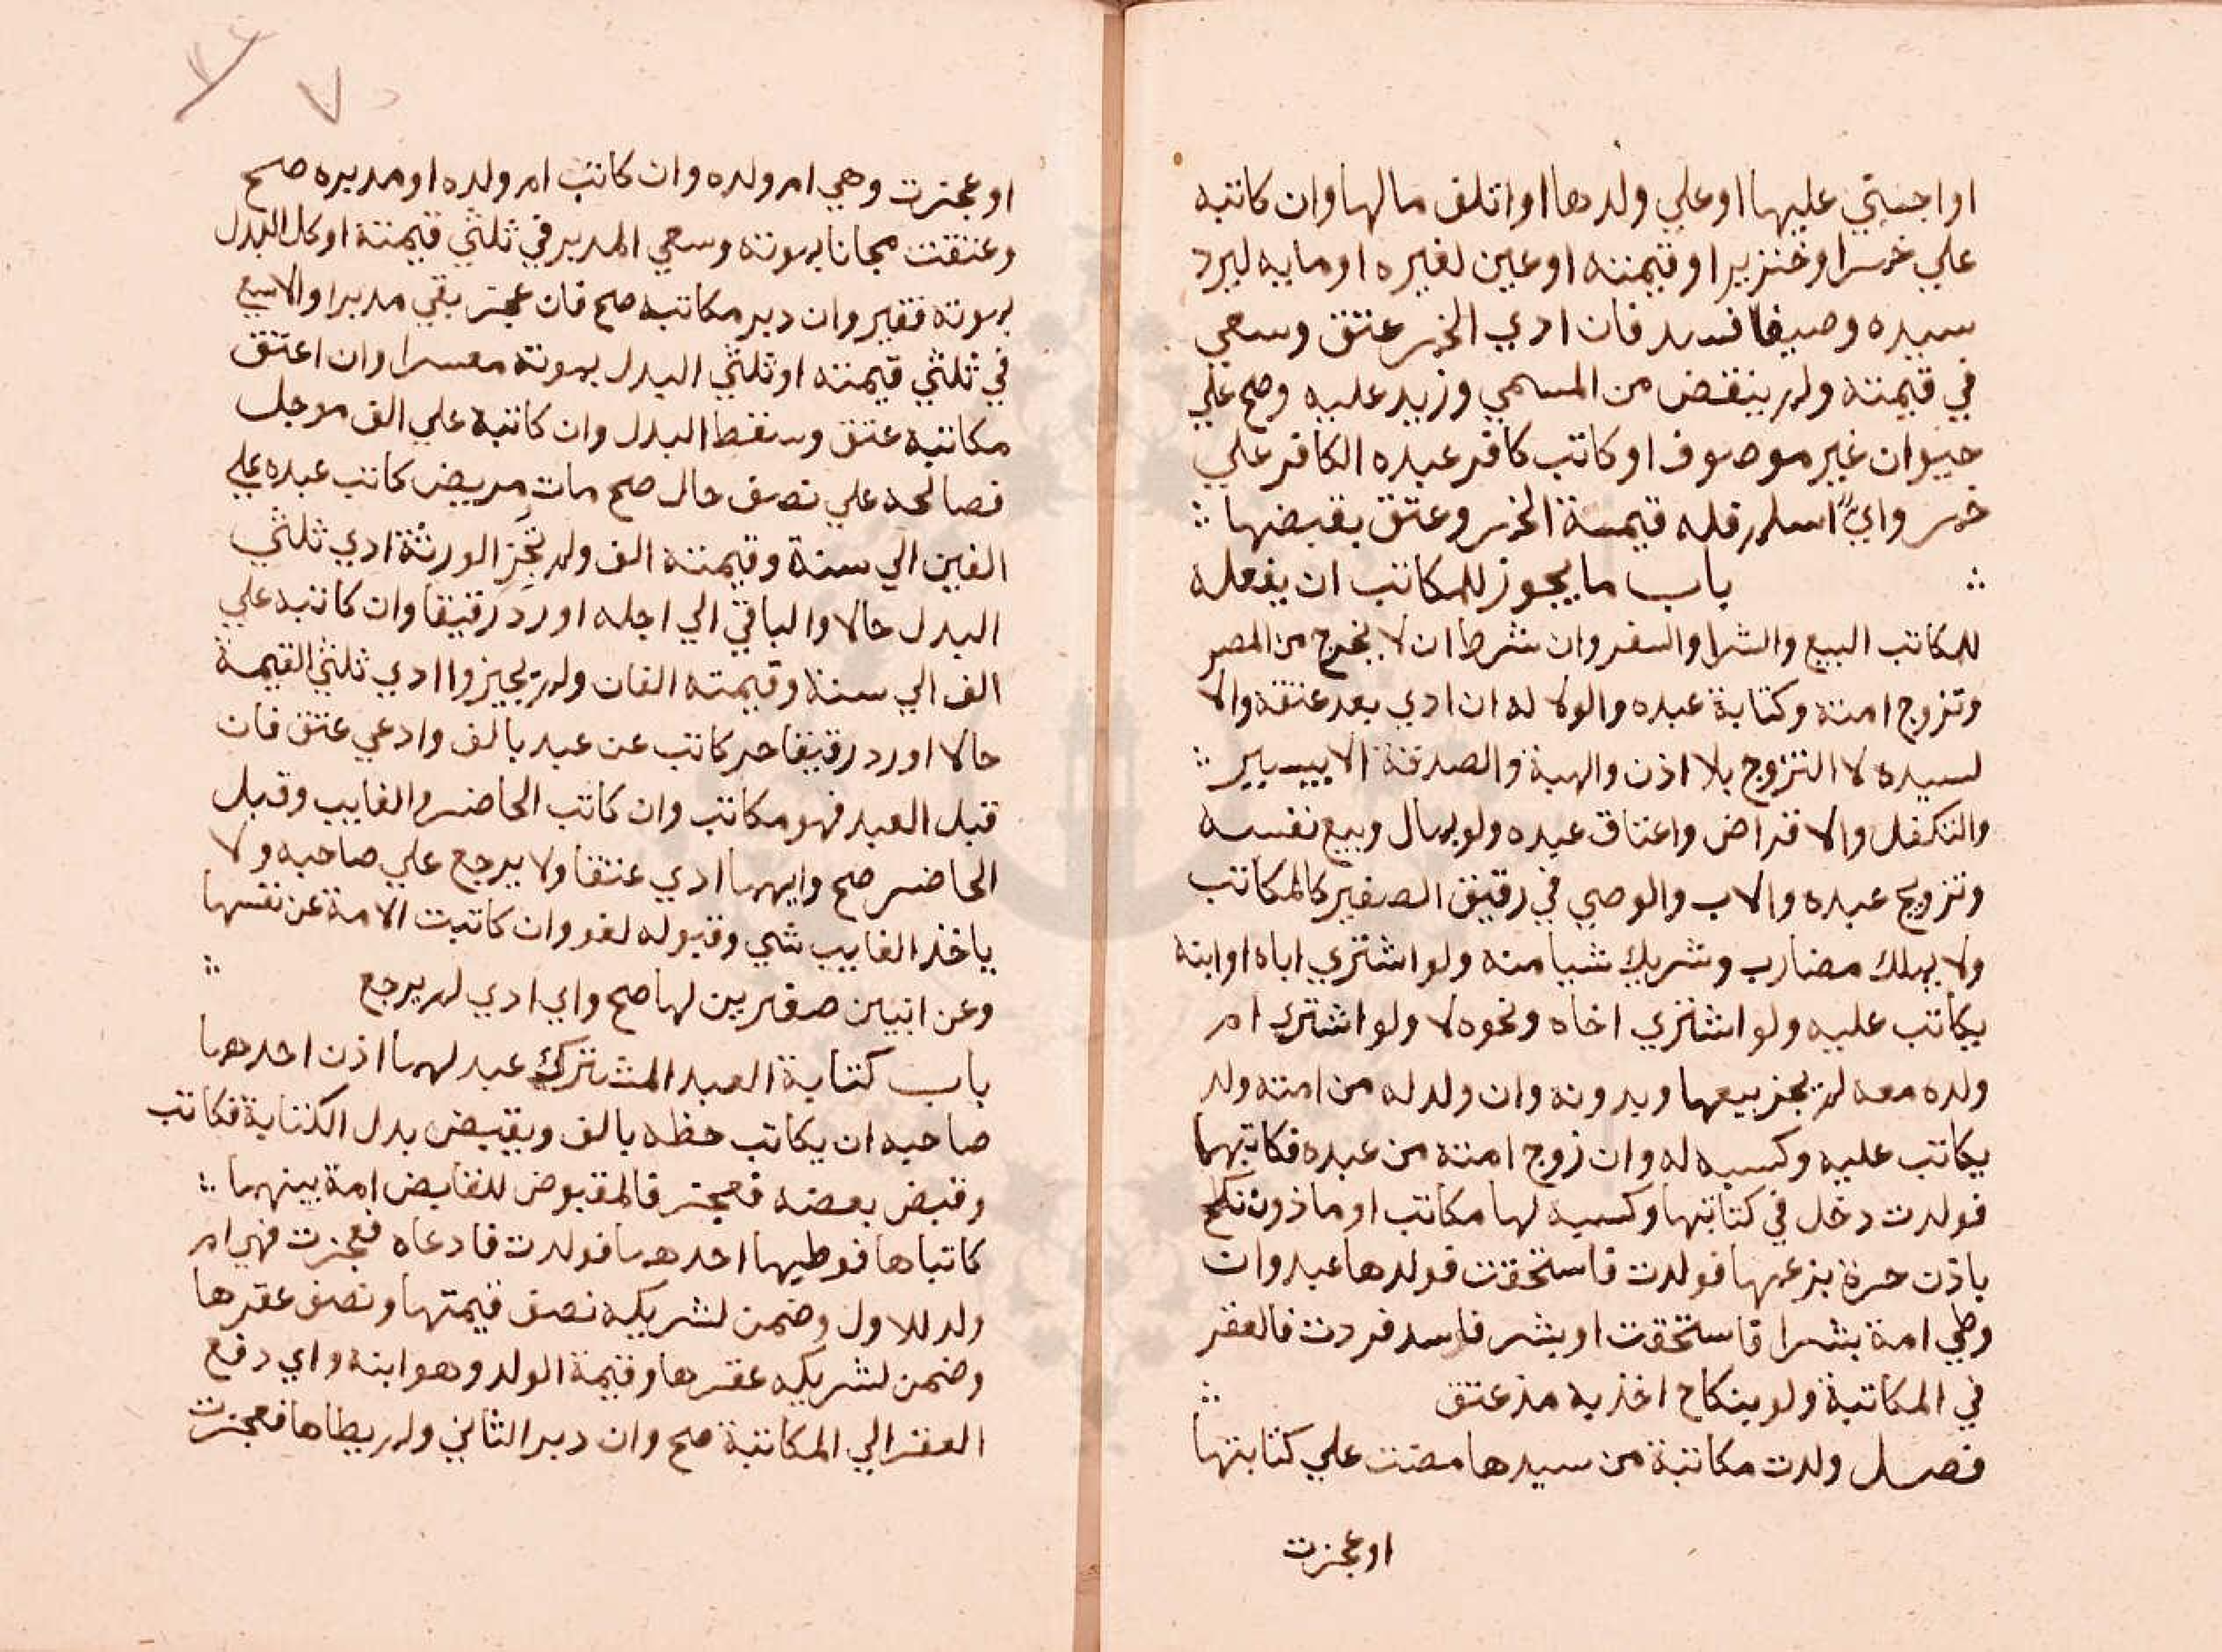 او اجنبي عليها او علي ولدها او اتلف مالها وان كاتبه
علي خمر او خنزير او قيمته او عين لغيره او مايه ليرد
سيده وصيفا فسد فان ادي الخمر عتق وسعي
في قيمته ولم ينقض من المسمي وزيد عليه وصح علي
حيوان غير موصوف او كاتب كافر عبده الكافر علي
خمر واي اسلم فله قيمة الخمر وعتق بقبضها
باب ما يجوز للمكاتب ان يفعله
للمكاتب البيع والشرا والسفر وان شرط ان لا يخرج من المصر
وتزوج امته وكتابة عبده والولا له ان ادي بعد عتقه والا
لسيده لا التزوج بلا اذن والهبة والصدقة الا بيسير
والتكفل والاقراض واعتاق عبده ولو بمال وبيع نفسه
وتزويج عبده والاب والوصي في رقيق الصغير كالمكاتب
ولا يملك مضارب وشريك شيا منه ولو اشتري اباه او ابنه
يكاتب عليه ولو اشتري اخاه ونحوه لا ولو اشتري ام
ولده معه لم يجز بيعها وبدونه وان ولد له من امته ولد
يكاتب عليه وكسبه له وان زوج امته من عبده فكاتبهما
فولدت دخل في كتابتها وكسبه لها مكاتب او ماذون نكح
باذن حرة بزعمها فولدت فاستحقت فولدها عبد وان
وطي امة بشرا فاستحقت او بشر فاسد فردت فالعقر
في المكاتبة ولو بنكاح اخذ به مذ عتق
فصل ولدت مكاتبة من سيدها مضت علي كتابتها
او عجزت
او عجزت وهي ام ولده وان كاتب ام ولده او مدبره صح
وعتقت مجانا بموته وسعي المدبر في ثلثي قيمته او كل البدل
بموته فقير وان دبر مكاتبه صح فان عجز بقي مدبرا والا سعي
في ثلثي قيمته او ثلثي البدل بموته معسرا وان اعتق
مكاتبه عتق وسقط البدل وان كاتبه علي الف موجل
فصالحه علي نصف حال صح مات مريض كاتب عبده علي
الفين الي سنة وقيمته الف ولم تجز الورثة ادي ثلثي
البدل حالا والباقي الي اجله او رد رقيقا وان كاتبه علي
الف الي سنة وقيمته الفان ولم يجيزوا ادي ثلثي القيمة
حالا او رد رقيقا حر كاتب عن عبد بالف وادعي عتق فان
قبل العبد فهو مكاتب وان كاتب الحاضر والغايب وقبل
الحاضر صح وايهما ادي عتقا ولا يرجع علي صاحبه ولا
ياخذ الغايب شي وقبوله لغو وان كاتبت الامة عن نفسها
وعن ابنين صغيرين لها صح واي ادي لم يرجع
باب كتابة العبد المشترك عبد لهما اذن احدهما
صاحبه ان يكاتب حظه بالف ويقبض بدل الكتابة فكاتب
وقبض بعضه فعجز فالمقبوض للقابض امة بينهما
كاتباها فوطيها احدهما فولدت فادعاه فعجزت فهي ام
ولد للاول وضمن لشريكه نصف قيمتها ونصف عقرها
وضمن لشريكه عقرها وقيمة الولد وهو ابنه واي دفع
العقر الي المكاتبة صح وان دبر الثاني ولم يطاها فعجزت